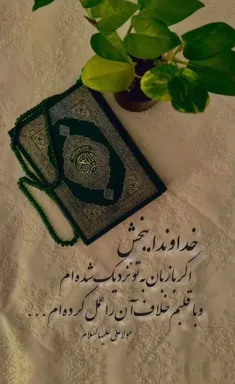 خداوندا ببخش
اگر با زبان به تو نزدیک شده ام
و با قلبم خلاف آن را عمل کرده ام...
مولا علی علیه‌السلام